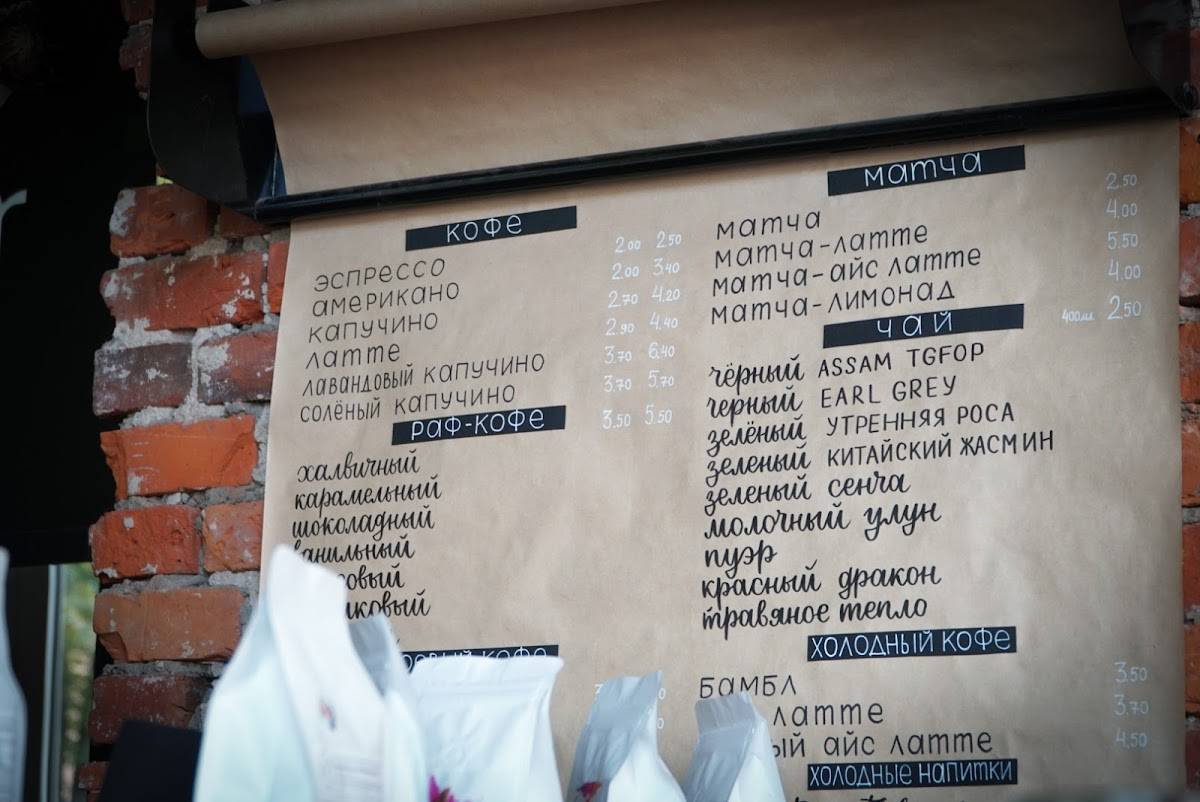 КОФЕ
ЭСПРЕССО 2.00 2.50
АМЕРИКАНО 2.00 3.40
КАПУЧИНО 2.70 4.20
ЛАТТЕ 2.90 4.40
ЛАВАНДОВЫЙ КАПУЧИНО 3.70 6.40
СОЛЁНЫЙ КАПУЧИНО 3.70 5.70
РАФ-КОФЕ 3.50 5.50
халвичный
карамельный
шоколадный
ванильный
КОФЕ
МАТЧА
МАТЧА 2.50
МАТЧА-ЛАТТЕ 4.00
МАТЧА-АЙС ЛАТТЕ 5.50
МАТЧА-ЛИМОНАД 4.00
ЧАЙ 400мл 2.50
чёрный ASSAM TGFOP
черный EARL GREY
зелёный УТРЕННЯЯ РОСА
зеленый КИТАЙСКИЙ ЖАСМИН
зеленый сенча
молочный улун
пуэр
красный дракон
травяное тепло
ХОЛОДНЫЙ КОФЕ
БАМБЛ 3.50
ЛАТТЕ 3.70
АЙС ЛАТТЕ 4.50
ХОЛОДНЫЕ НАПИТКИ